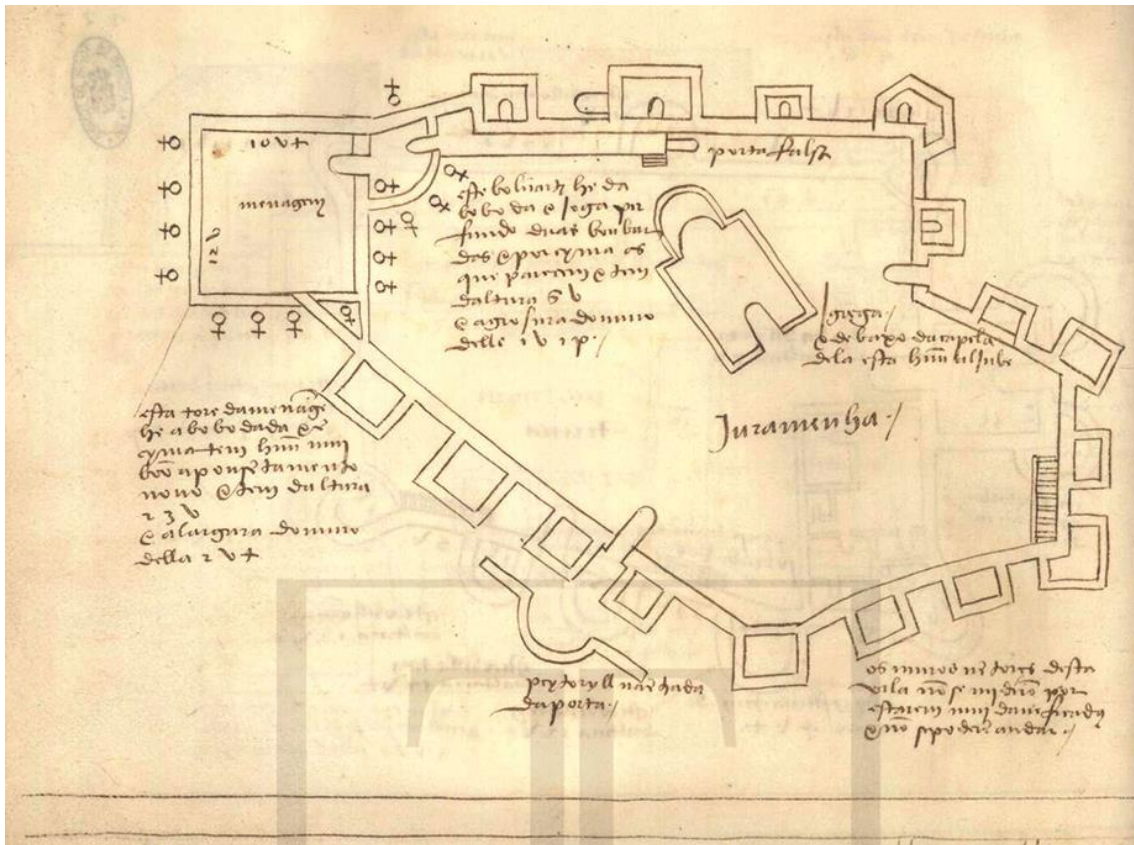 10 v +
menagem
12 v
porta falsa
este baluarte he da
boboda e joga por
fundo duas bombar
das e per cyma as
que parecem e tem
daltura 5 v
e a grosura do muro
delle 1 v 1 p.
Igreja
e debaxo da capela
dela esta hum aljube
Juramenha
esta tore da menagem
he abobodada e
cyma tem hum mui
bom apousentamento
novo e tem daltura
2 3 v
e a largura do muro
della 2 v +
peytoryll na entrada
da porta
os muros ne tores desta
vila não se mediram por
estarem mui danificados
e não se poderem andar